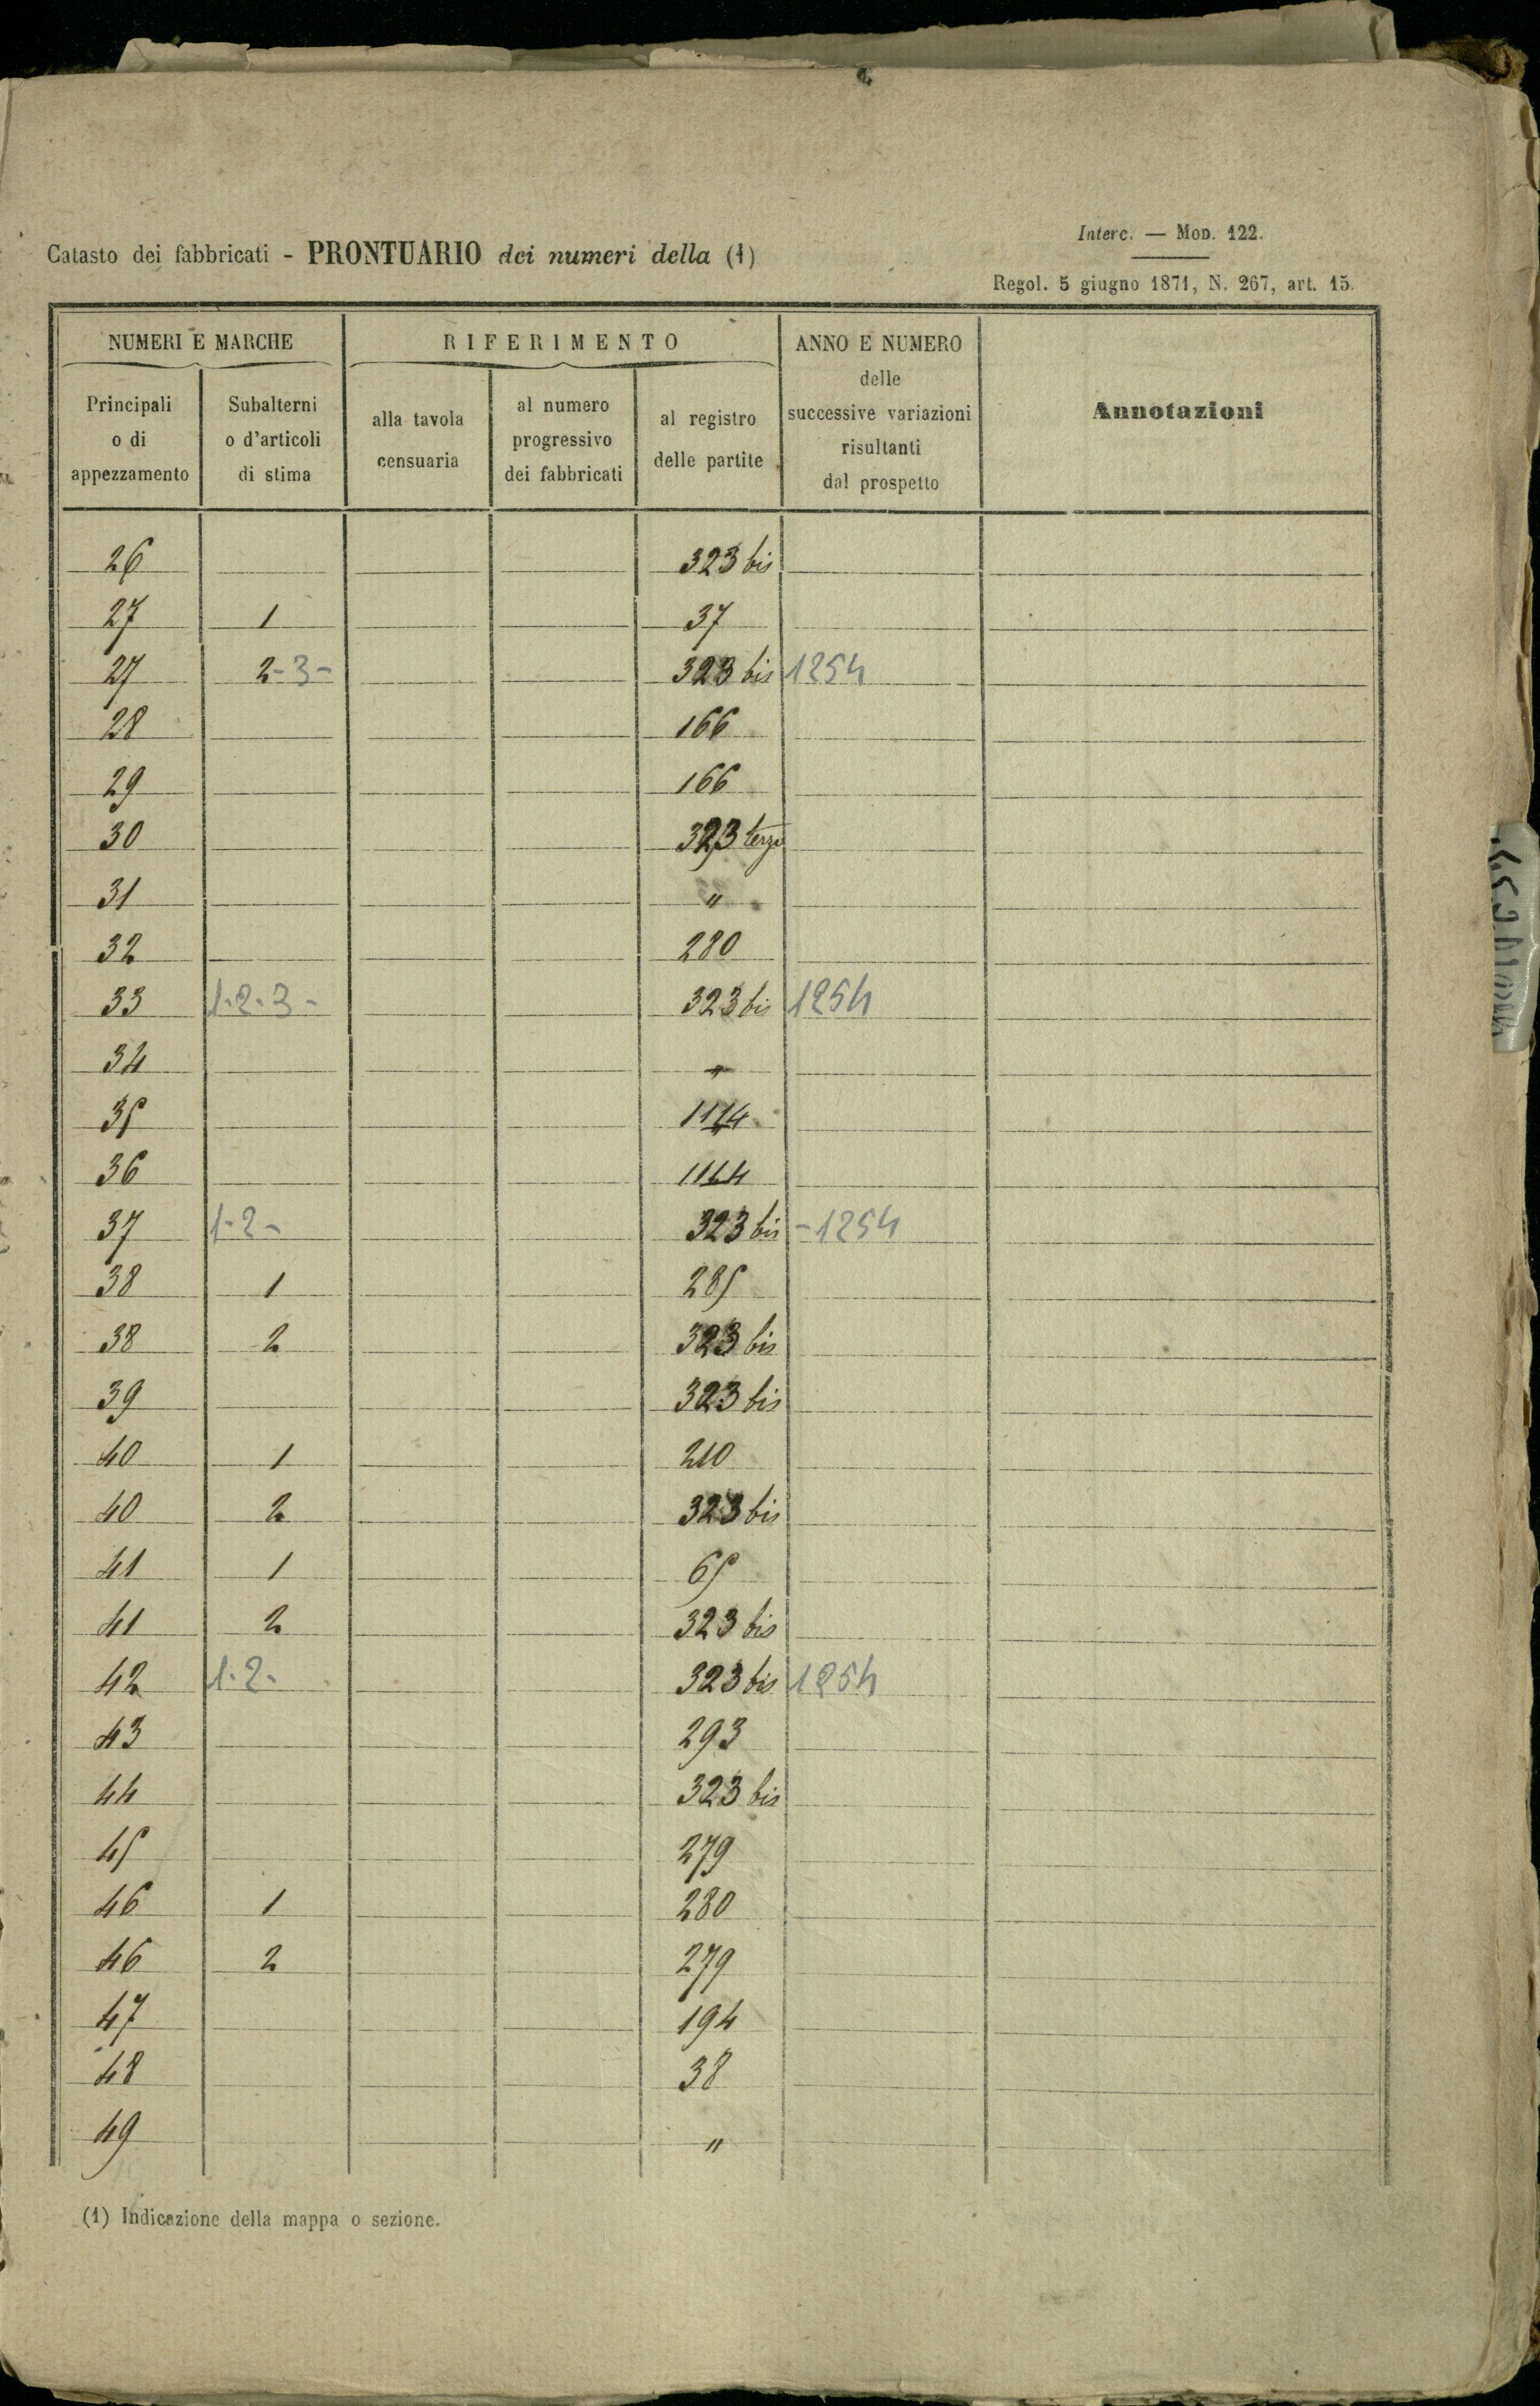 Interc. — Mod. 122.
Catasto dei fabbricati - PRONTUARIO dei numeri della (1)
Regol. 5 giugno 1871, N. 267, art. 15.
NUMERI E MARCHE RIFERIMENTO ANNO E NUMERO delle successive variazioni risultanti dal prospetto Annotazioni
Principali o di appezzamento Subalterni o d'articoli di stima alla tavola censuaria al numero progressivo dei fabbricati al registro delle partite
26 323 bis
27 1 37
27 2-3- 323 bis 1254
28 166
29 166
30 323 terzo
31 "
32 280
33 1-2-3- 323 bis 1254
34 "
35 1144
36 1144
37 1-2- 323 bis -1254
38 1 285
38 2 323 bis
39 323 bis
40 1 210
40 2 323 bis
41 1 65
41 2 323 bis
42 1-2- 323 bis 1254
43 293
44 323 bis
45 279
46 1 280
46 2 279
47 194
48 38
49 "
(1) Indicazione della mappa o sezione.